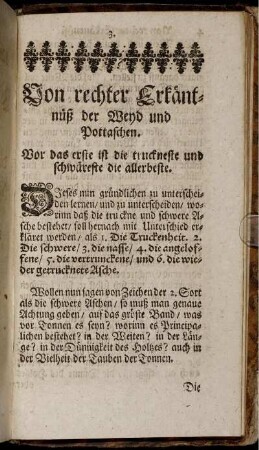 3.
Von rechter Erkänt-
nüß der Weyd und
Pottaschen.
Vor das erste ist die truckneste und
schwäreste die allerbeste.
DJeses nun gründlichen zu unterschei-
den lernen/ und zu unterscheiden/ wo-
rinn daß die truckne und schwere A-
sche bestehet/ soll hernach mit Unterschied er-
kläret werden/ als 1. Die Truckenheit. 2.
Die schwere/ 3. die nasse/ 4. die angelof-
fene/ 5. die vertrunckene/ und 6. die wie-
der getrucknete Asche.
Wollen nun sagen von Zeichen der 2. Sort
als die schwere Aschen/ so muß man genaue
Achtung geben/ auf das gröste Band/ was
vor Tonnen es seyn? worinn es Principa-
lichen bestehet? in der Weiten? in der Län-
ge? in der Dünnigkeit des Holtzes? auch in
der Vielheit der Tauben der Tonnen.
Die